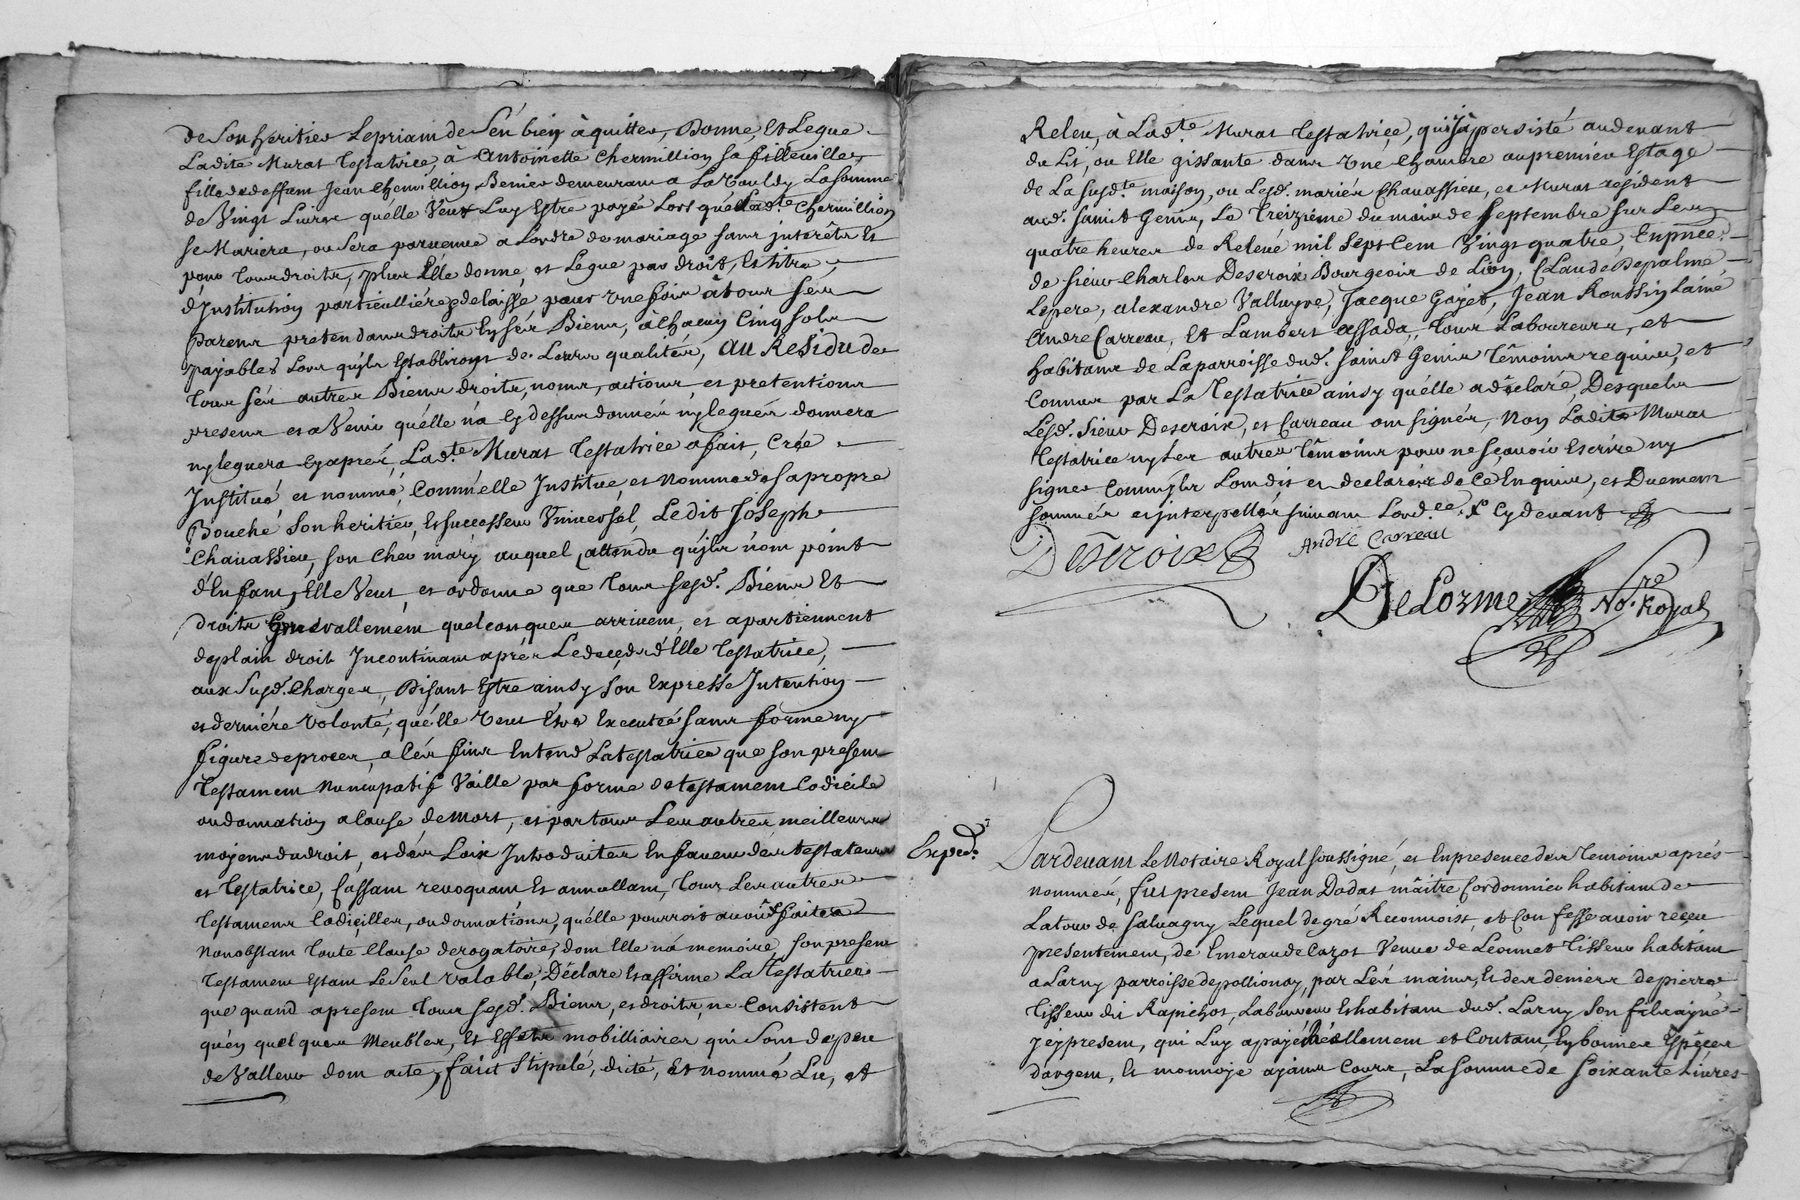 de son héritier Lepriant de s'en bien àquitter, Donne, et Legue
Ladite Murat Testatrice, à Antoinette Chermillion sa filleuille,
fille de deffunt Jean Chermillion Benier demeurant a La Somme
de Vingt Livres quélle Veut Luy Estre payé Lors quélladte. Chermillion
se Mariera, ou sera parvenue a Lordre de mariage sans jnterêts Et
pour tous droits, plus Elle donne, et Legue par droit, Et titre
d'Institution particulliére, & delaisse pour une fois à tous ses
Parens pretendans droits En sés Biens, à Chacun Cinq sols
payables Lors qu'jls Establiront de Leurs qualités, AU Residu de
tous sés autres Biens droits, noms, actions, et pretentions
presens et a Venir quélle n'a Cy dessus donnés ny legués donnera
ny leguera Cy aprés, Ladte. Murat Testatrice a fait, Crée
Institué, et nommé, Comm'elle Institue, et Nomme de sa propre
Bouche son heritier, Et successeur Universel, Ledit Joseph
Chavassieu, son Cher mary auquel, attendu qu'jls n'ont point
d'Enfant, Elle Veut, et ordonne que tous sesd. Biens Et
droits Generallement quelconques arrivent, et apartiennent
de plain droit Incontinant aprés Le decéds d'Elle Testatrice,
aux susd. Charges, Disant Estre ainsy son Expresse Intention
et derniére Volonté, quélle Veut Estre Executté sans forme ny
figure de procés, a Cés fins Entend La testatrice que son present
Testament Nuncupatif Vaille par forme de testament Codicile
ou donnation a Cause de Mort, et par tous Les autres meilleurs
moyens du droit, et dés Loix Introduites En faveur dés testateurs
et Testatrice, Cassant revoquant Et annullant, tous Les autres
Testamens Codiciles, ou donnations, quélle pourroit avoir faites
Nonobstant toute Clause derogatoire, dont Elle n'a memoire, son present
Testament Estant Le seul Valable, Déclare Et affirme La Testatrice
que quand a present tous sesd. Biens, et droits, ne Consistent
qu'en quelques Meubles, Et Effets mobilliaires qui sont de peu
de Valleur dont acte, fait stipulé, dicté, et nommé Lu, et
Releu, à Ladte. Murat Testatrice, qui y à persisté au devant
du Lit, ou Elle gissante dans une Chambre au premier Estage
de La susdte. maison, ou Lesd. mariés Chavassieu, et Murat resident
aud. saint Genis, Le treiziéme du mois de septembre sur Les
quatre heures de Relevé mil sept Cent Vingt quatre, En pnce.
de sieur Charles Descroix Bourgeois de Lion, Claude Depalme
Le pere, alexandre Valluyre, Jacque Gayet, Jean Roussin Lainé
André Carreau, Et Lambert assada, tous Laboureurs, et
habitans de La parroisse dud. saint Genis témoins requis, et
Connus par La Testatrice ainsy quélle a déclaré, Desquels
Lésd. Sieur Descroix, et Carreau ont signés, Non Ladite Murat
Testatrice ny Les autres témoins pour ne sçavoir Escrire ny
signer Comm'jls L'ont dit et declarés de Ce Enquis, et Duement
sommés et jnterpellés suivant Lord.ce Cy devant
Descroix André Carreau
Delorme No.re Royal
Exped.
Pardevant Le Notaire Royal soussigné, et En presence des témoins aprés
nommés, fut present Jean Dadat maître Cordonnier habitant de
Latour de salvagny Lequel de gré Reconnoist, et Confesse avoir receu
presentement, de Emeraude Cazot Veuve de Leonnet Tisseur habitant
a Larny parroisse de pollionay, par Lés mains, Et des deniers de pierre
Tisseur dit Rapichot, Laboureur Et habitant dud. Larny son fils ainé
jcy present, qui Luy a payé Réellement et Contant, En bonnes Espêces
d'argent, Et monnoye ayant Cours, La somme de soixante Livres